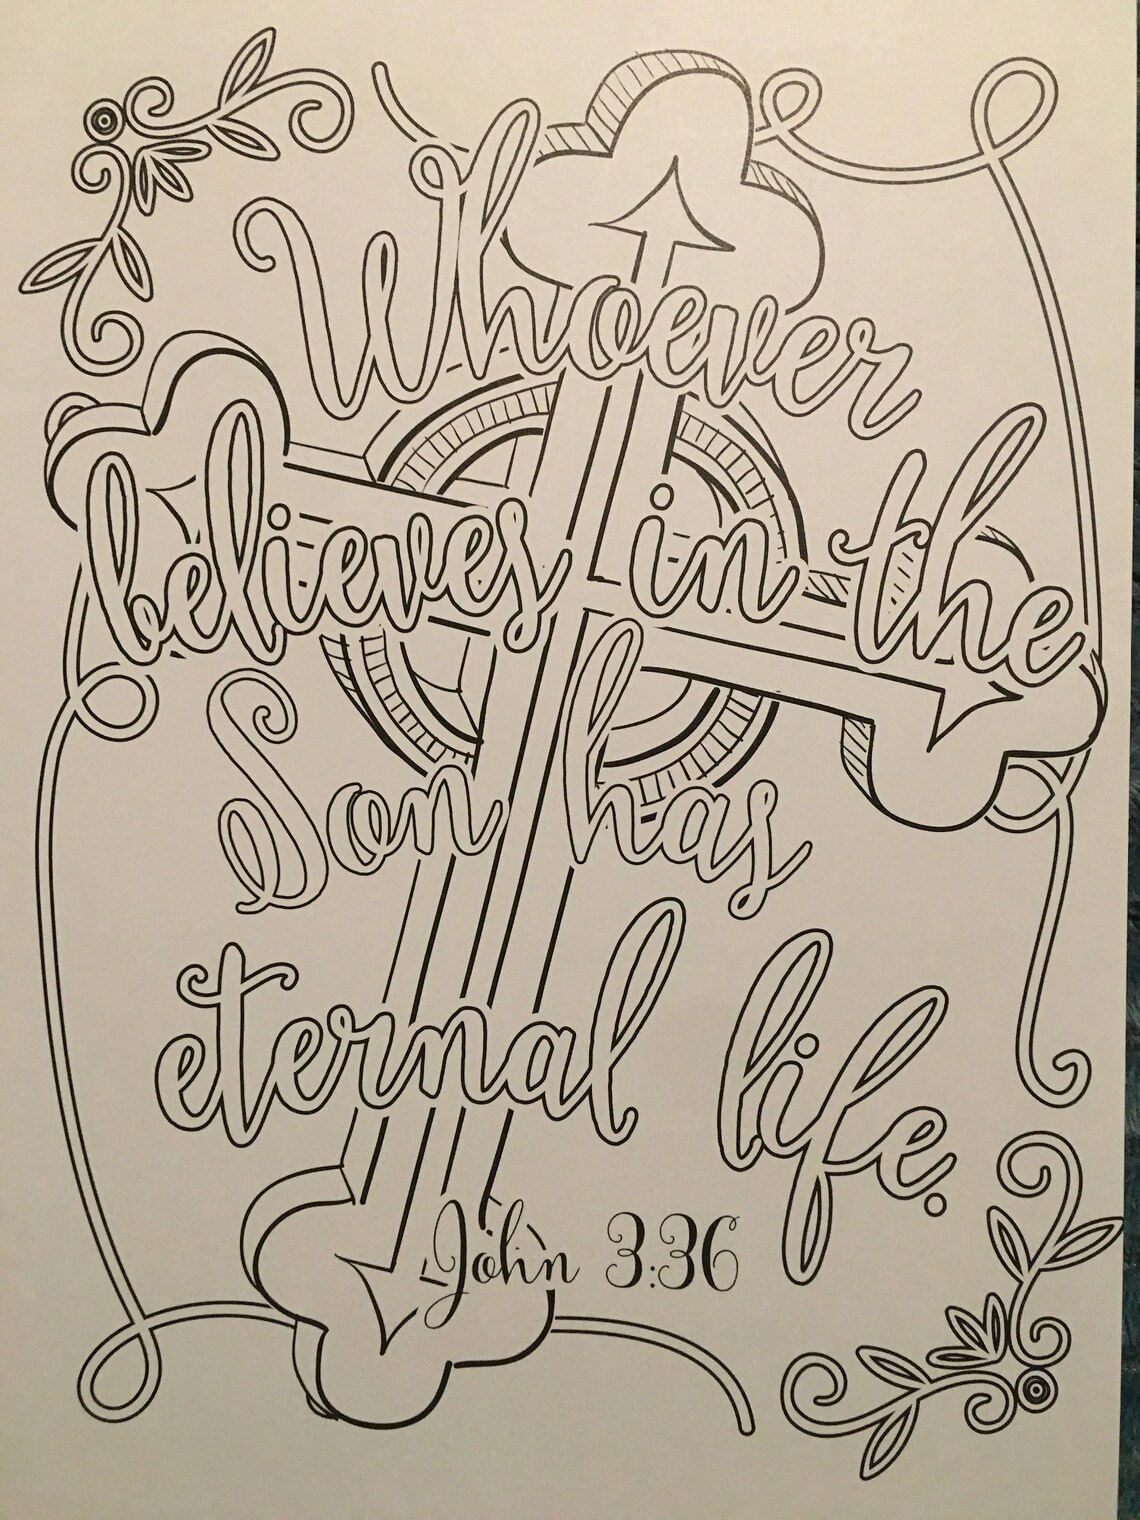 Whoever
believes in the
Son has
eternal life.
John 3:36